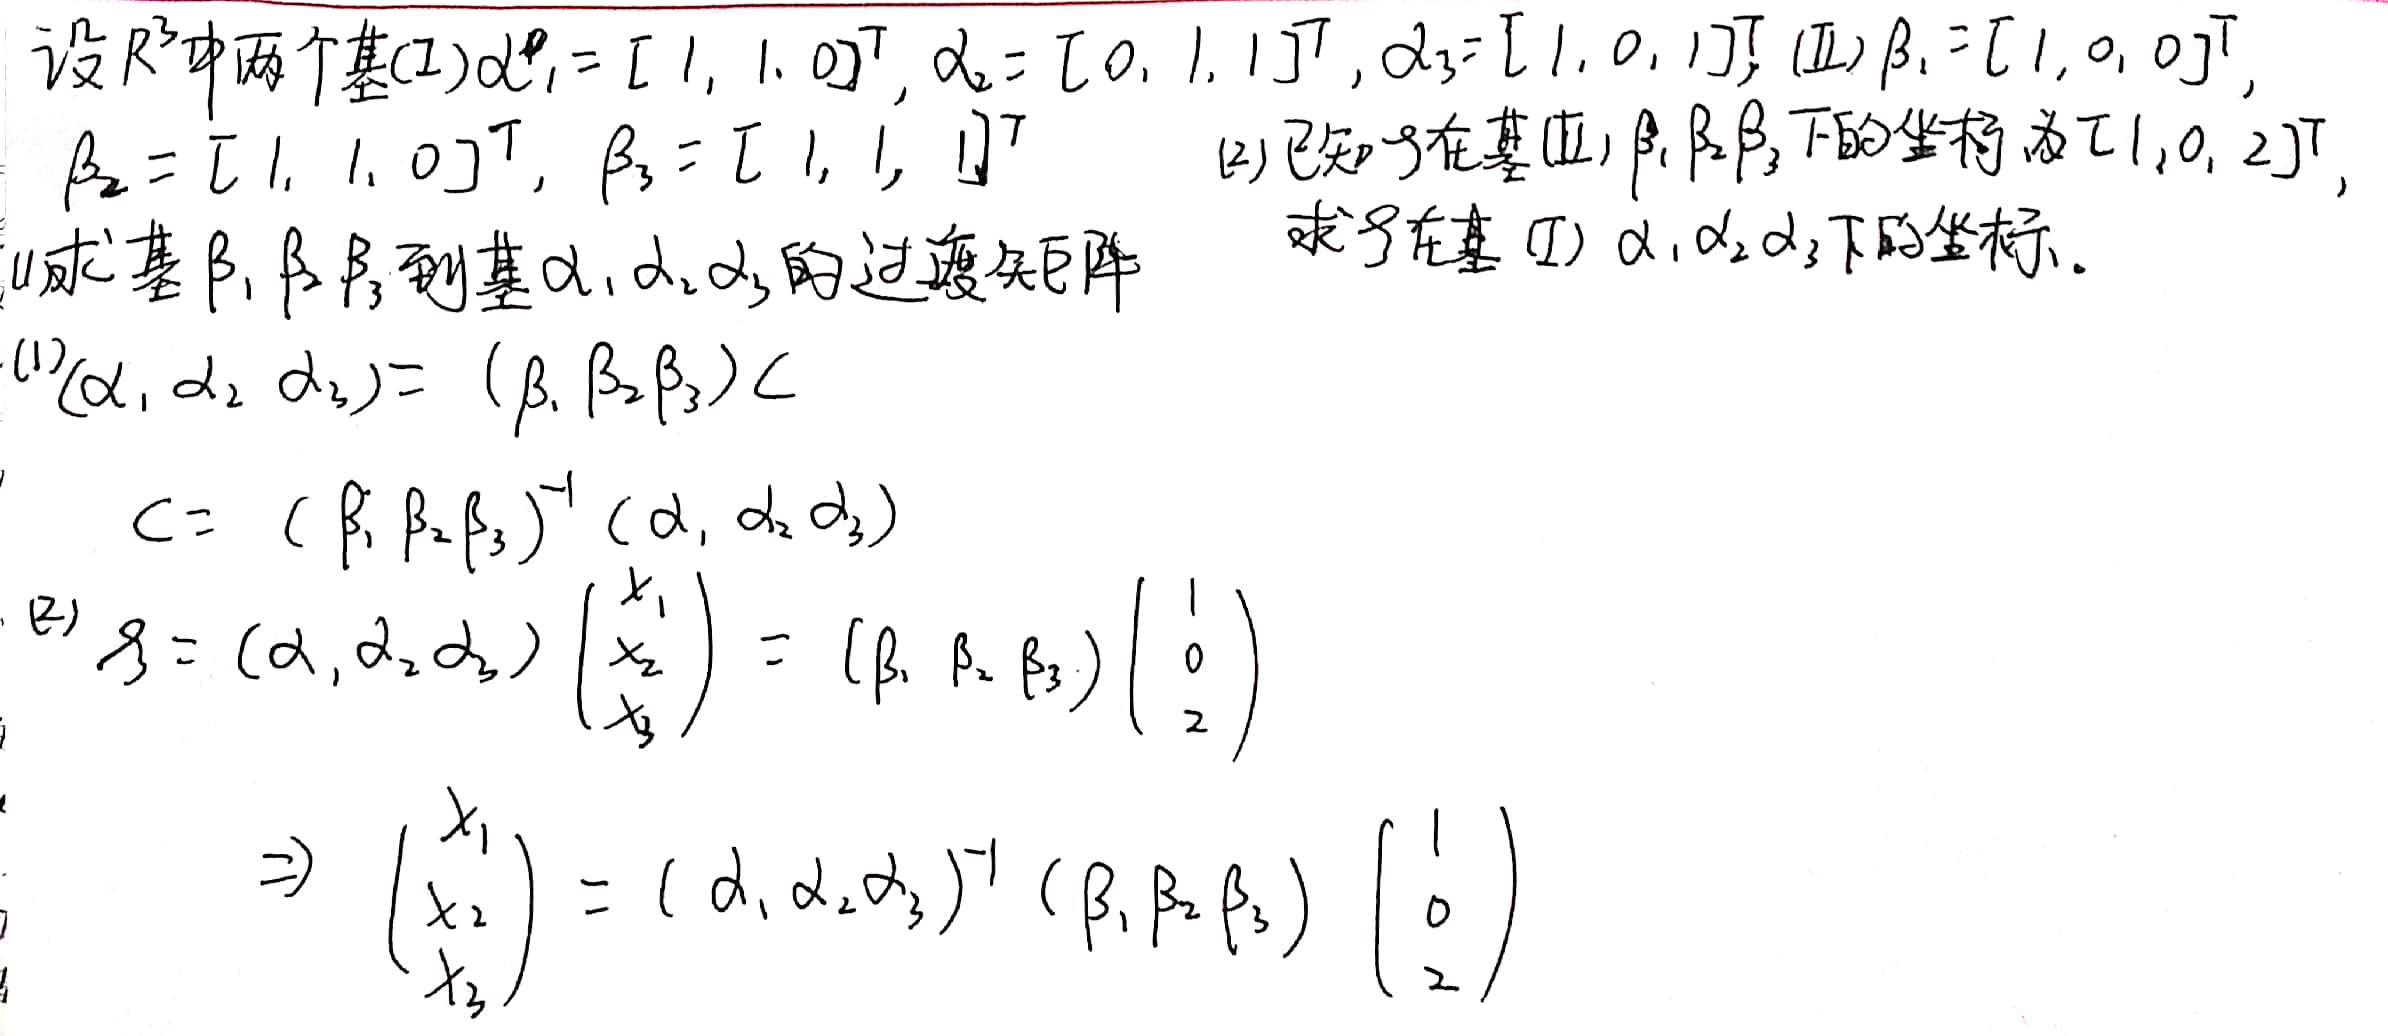 设R³中两个基(I)α₁=[1,1,0]ᵀ,α₂=[0,1,1]ᵀ,α₃=[1,0,1]ᵀ;(II)β₁=[1,0,0]ᵀ,
β₂=[1,1,0]ᵀ, β₃=[1,1,1]ᵀ
(1)求基β₁β₂β₃到基α₁α₂α₃的过渡矩阵
(2)已知ξ在基(II)β₁β₂β₃下的坐标为[1,0,2]ᵀ,
求ξ在基(I)α₁α₂α₃下的坐标.
(1)(α₁ α₂ α₃)=(β₁ β₂ β₃)C
C=(β₁ β₂ β₃)⁻¹(α₁ α₂ α₃)
(2) ξ=(α₁,α₂ α₃)(x₁ x₂ x₃)=(β₁ β₂ β₃)(1 0 2)
⇒ (x₁ x₂ x₃)=(α₁ α₂ α₃)⁻¹(β₁ β₂ β₃)(1 0 2)